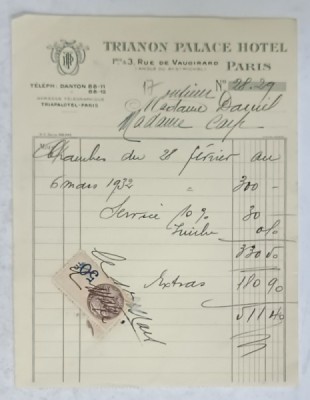 TRIANON PALACE HOTEL
1BIS & 3, RUE DE VAUGIRARD
(ANGLE DU BD ST-MICHEL)
PARIS
TÉLÉPH: DANTON 88-11
88-12
ADRESSE TÉLÉGRAPHIQUE
TRIAPALOTEL-PARIS
N° 28.29
Madame Daniel
Madame
Chambres du 28 février au
6 mars 1932 " 300 -
Service 10% 30
Timbre 0.50
330 50
Extras 180 90
511 40